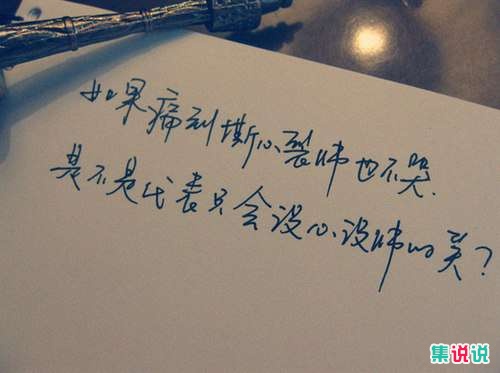 如果痛到撕心裂肺也不哭.
是不是代表只会没心没肺的笑?
集说说